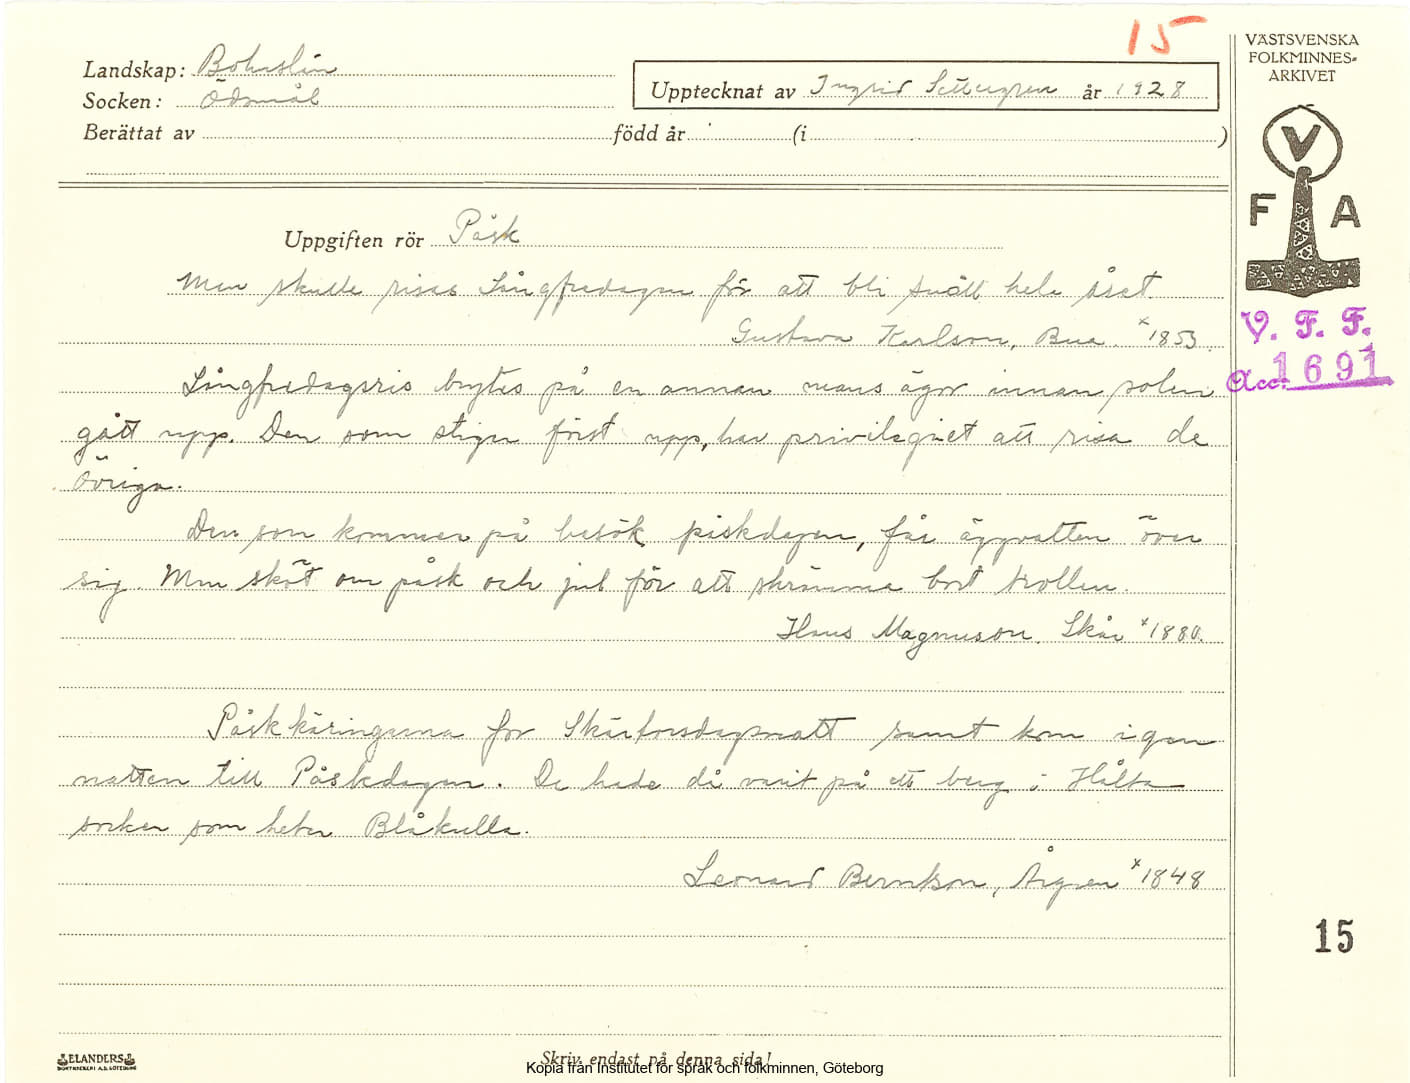 15
VÄSTSVENSKA
FOLKMINNES-
ARKIVET
Landskap: Bohuslän
Socken: Ödsmål
Upptecknat av Ingrid år 1928
Berättat av född år (i )
V
F A
Uppgiften rör Påsk
Man skulle risas Långfredagen för att bli snäll hela året.
Gustava Karlson, Bua *1853.
V. F. F.
Acc. 1691
Långfredagsris brytes på en annan mans ägor innan solen
gått upp. Den som stiger först upp, har privilegiet att risa de
övriga.
Den som kommer på besök påskdagen, får äggvatten över
sig. Man sköt om påsk och jul för att skrämma bort trollen.
Hans Magnuson, Skår *1880.
Påskkäringarna for Skärtorsdagsnatt samt kom igen
natten till Påskdagen. De hade då varit på ett berg i Hålta
socken som heter Blåkulla.
Leonard Berntson, *1848
15
ELANDERS
BOKTRYCKERI A.B. GÖTEBORG
Skriv endast på denna sida!
Kopia från Institutet för språk och folkminnen, Göteborg